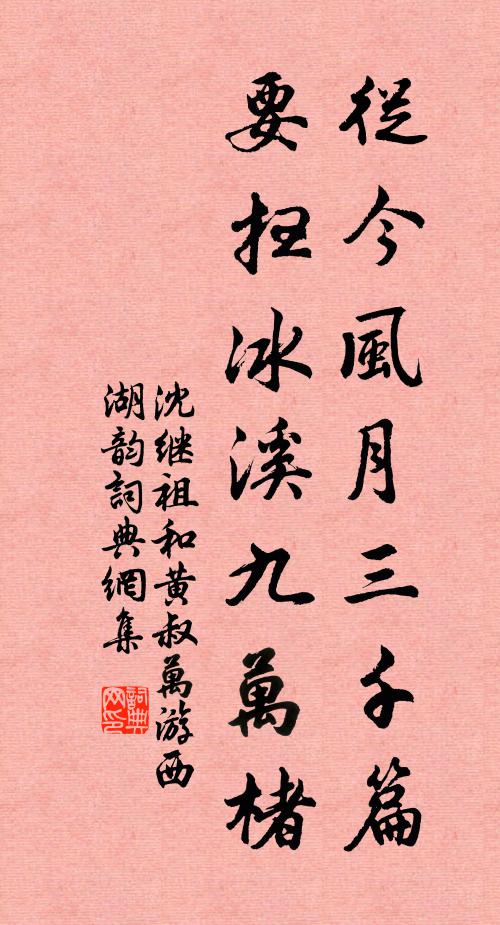 從今風月三千篇
要扫冰溪九萬楮
沈继祖和黄叔萬游西
湖韵詞典網集
詞典
网印